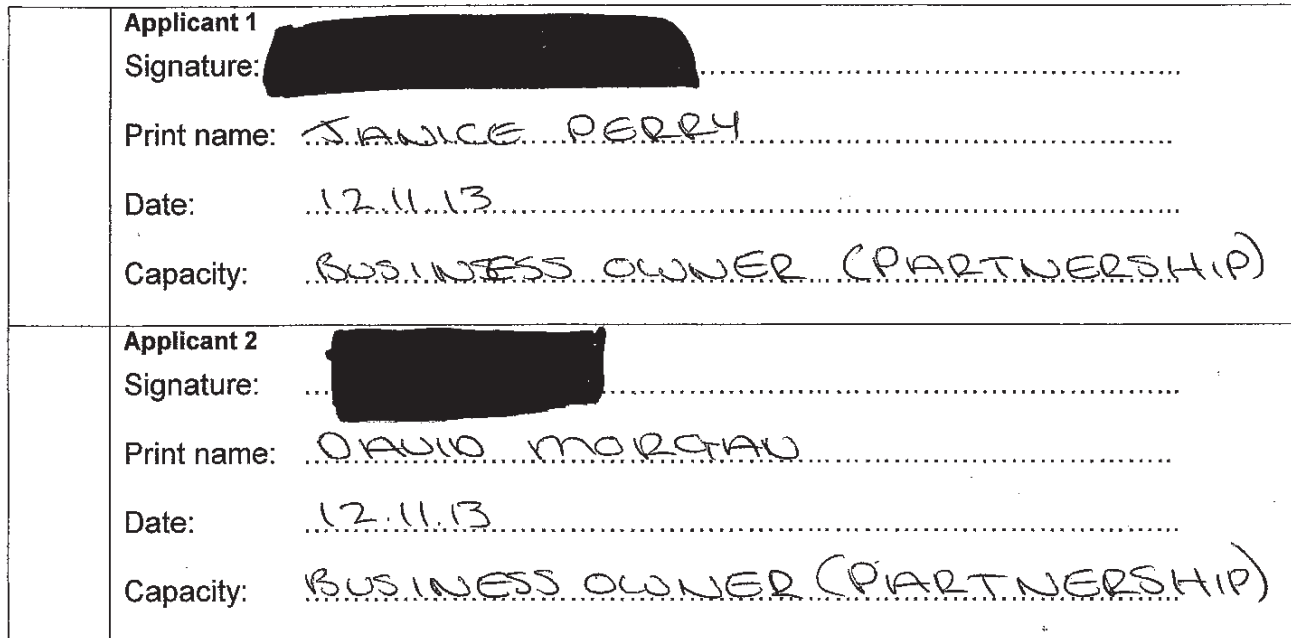 Applicant 1
Signature:
Print name: JANICE PERRY
Date: 12.11.13
Capacity: BUSINESS OWNER (PARTNERSHIP)
Applicant 2
Signature:
Print name: DAVID MORGAN
Date: 12.11.13
Capacity: BUSINESS OWNER (PARTNERSHIP)